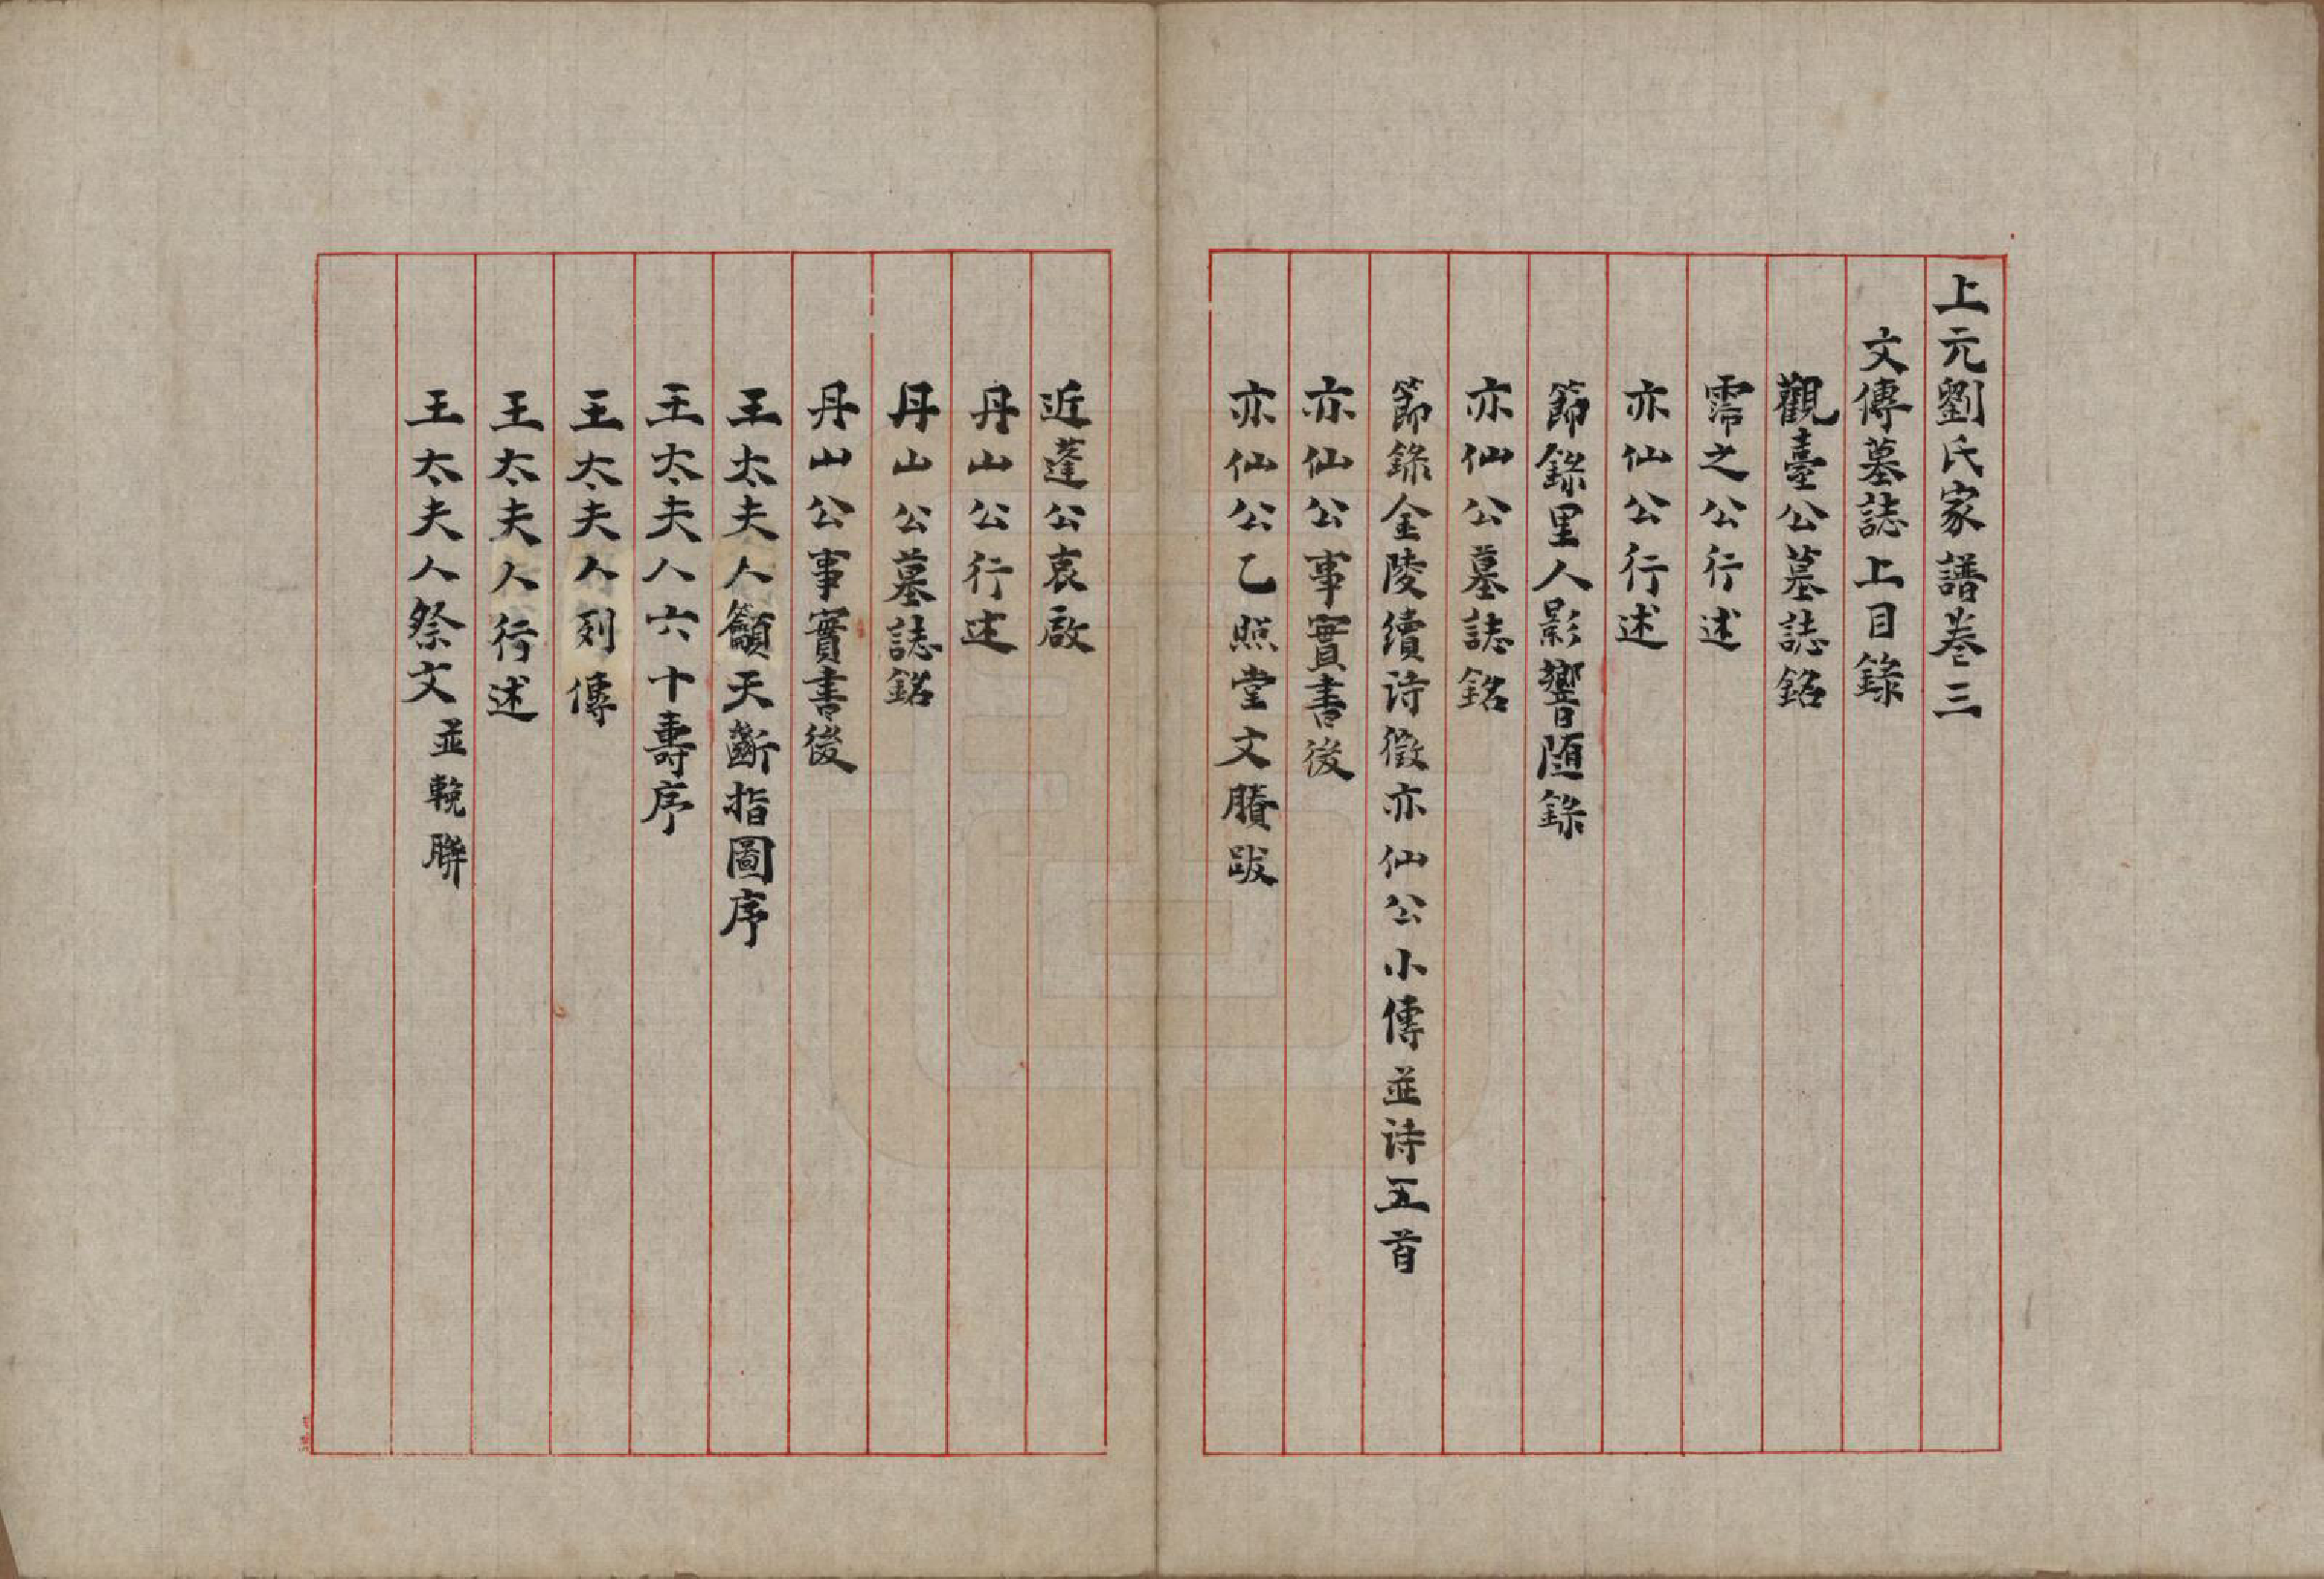 上元劉氏家譜卷三
文傳墓誌上目錄
觀臺公墓誌銘
霈之公行述
亦仙公行述
節錄里人影響随錄
亦仙公墓誌銘
節錄金陵續诗徵亦仙公小傳並诗五首
亦仙公事實書後
亦仙公乙照堂文賸跋
近蓬公哀啟
丹山公行述
丹山公墓誌銘
丹山公事實書後
王太夫人籲天斷指圖序
王太夫人六十壽序
王太夫人列傳
王太夫人行述
王太夫人祭文並輓聯